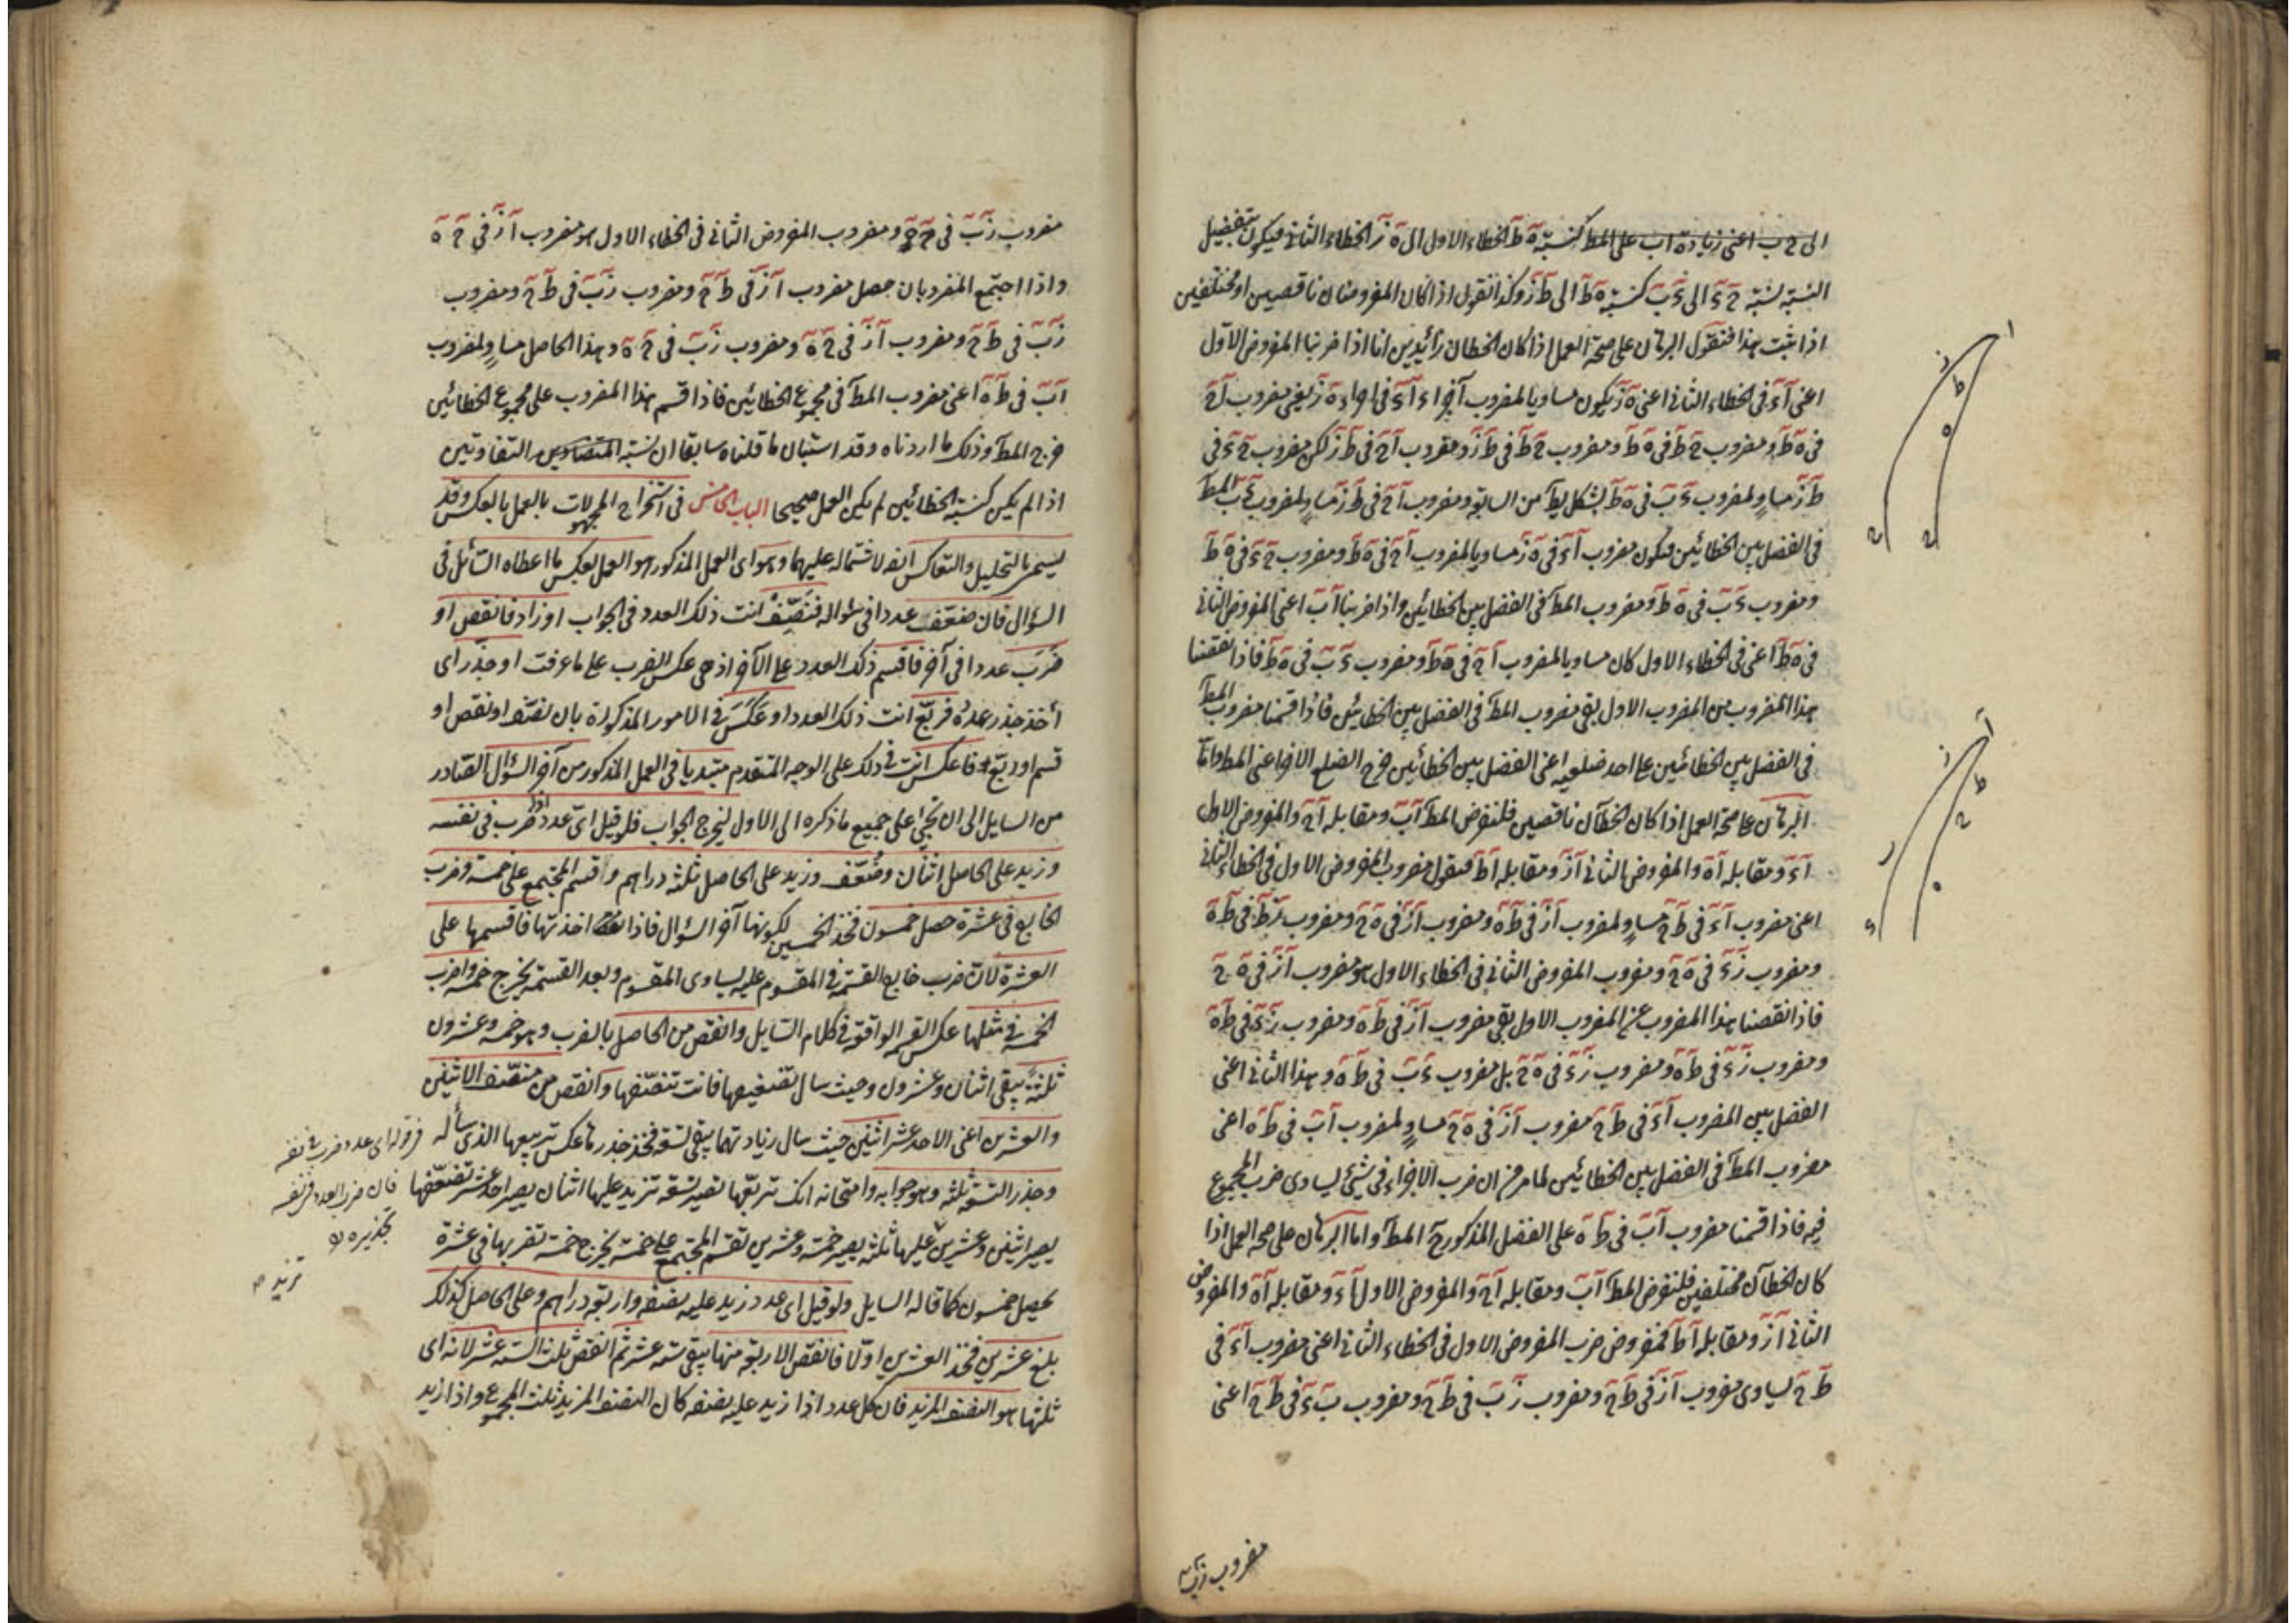 الى ح ب اعنى زيادة اب على المط كنسبة ه ط الخطاء الاول الى ه ز الخطاء الثانى فيكون بتفضيل
النسبة نسبة ح ء الى ء ب كنسبة ه ط الى ط ز وكذا نقول اذا كان المفروضان ناقصين او مختلفين
اذا ثبت هذا فنقول البرهان على صحة العمل اذا كان الخطان زائدين انا اذا ضربنا المفروض الاول
اعنى ا ء فى الخطاء الثانى اعنى ه ز يكون مساويا لمضروب اجزاء ا ء فى اجزاء ه ز يعنى مضروب ا ح
فى ه ط ومضروب ح ط فى ه ط ومضروب ح ط فى ط ز ومضروب ا ح فى ط ز لكن مضروب ح ء فى
ط ز مساو لمضروب ء ب فى ه ط بشكل يط من السابعة ومضروب ا ح فى ط ز مساو لمضروب ء ب المط
فى الفضل بين الخطائين فيكون مضروب ا ء فى ه ز مساويا لمضروب ا ح فى ه ط ومضروب ح ء فى ه ط
ومضروب ء ب فى ه ط ومضروب المط فى الفضل بين الخطائين واذا ضربنا ا ب اعنى المفروض الثانى
فى ه ط اعنى فى الخطاء الاول كان مساويا لمضروب ا ح فى ه ط ومضروب ء ب فى ه ط فاذا نقصنا
هذا المضروب من المضروب الاول بقى مضروب المط فى الفضل بين الخطائين فاذا قسمنا مضروب المط
فى الفضل بين الخطائين على احد ضلعيه اعنى الفضل بين الخطائين خرج الضلع الاخر اعنى المط واما
البرهان على صحة العمل اذا كان الخطآن ناقصين فلنفرض المط ا ب ومقابله ا ح والمفروض الاول
ا ء ومقابله ا ه والمفروض الثانى ا ز ومقابله ا ط فنقول مضروب المفروض الاول فى الخطاء الثانى
اعنى مضروب ا ء فى ط ح مساو لمضروب ا ز فى ط ه ومضروب ا ز فى ه ح ومضروب ز ط فى ط ه
ومضروب ز ء فى ه ح ومضروب المفروض الثانى فى الخطاء الاول هو مضروب ا ز فى ه ح
فاذا نقصنا هذا المضروب عن المضروب الاول بقى مضروب ا ز فى ط ه ومضروب ز ء فى ط ه
ومضروب ز ء فى ط ه ومضروب ز ء فى ه ح بل مضروب ء ب فى ط ه وهذا الثانى اعنى
الفضل بين المضروب ا ء فى ط ح مضروب ا ز فى ه ح مساو لمضروب ا ب فى ط ه اعنى
مضروب المط فى الفضل بين الخطائين لما مر من ان ضرب الاجزاء فى شئ يساوى ضرب المجموع
فيه فاذا قسمنا مضروب ا ب فى ط ه على الفضل المذكور خ المط واما البرهان على صحه العمل اذا
كان الخطآن مختلفين فلنفرض المط ا ب ومقابله ا ح والمفروض الاول ا ء ومقابله ا ه والمفروض
الثانى ا ز ومقابله ا ط فمفروض ضرب المفروض الاول فى الخطاء الثانى اعنى مضروب ا ء فى
ط ح يساوى مضروب ا ز فى ط ح ومضروب ز ب فى ط ح ومضروب ب ء فى ط ح اعنى
مضروب ز ب
ا
ز
ط
ه
ح
ح
ا
ز
ط
ح
ه
مضروب ز ب فى ح ه ومضروب المفروض الثانى فى الخطاء الاول هو مضروب ا ز فى ح ه
واذا اجتمع المضروبان حصل مضروب ا ز فى ط ح ومضروب ز ب فى ط ح ومضروب
ز ب فى ط ح ومضروب ا ز فى ح ه ومضروب ز ب فى ح ه وهذا الحاصل مساو لمضروب
ا ب فى ط ه اعنى مضروب المط فى مجموع الخطائين فاذا قسم هذا المضروب على مجموع الخطائين
خرج المط وذلك ما اردناه وقد استبان ما قلناه سابقا ان نسبة التفاوتين
اذا لم يكن كنسبة الخطائين لم يكن العمل صحيحا الباب الخامس فى استخراج المجهولات بالعمل بالعكس وقد
يسمى بالتحليل والتعاكس ايضا لاشتماله عليهما وهو اى العمل المذكور هو العمل بعكس ما اعطاه السائل فى
السؤال فان ضعّف عددا فى سؤاله فنصّف انت ذلك العدد فى الجواب او زاد فانقص او
ضرب عددا فى آخر فاقسم ذلك العدد على الآخر اذ هى عكس الضرب على ما عرفت او جذّر اى
أخذ جذر عدده فربّع انت ذلك العدد او عكس فى الامور المذكورة بان نصّف او نقص او
قسم او ربّع فاعكس انت فى ذلك على الوجه المتقدم مبتديا فى العمل المذكور من آخر السؤال الصادر
من السايل الى ان تجئ على جميع ما ذكره الى الاول ليخرج الجواب فلو قيل اىّ عدد اذا ضرب فى نفسه
وزيد على الحاصل اثنان وضُعّف وزيد على الحاصل ثلثه دراهم وأقسم المجتمع على خمسة وضرب
الخارج فى عشرة حصل خمسون فخذ الخمسين لكونها آخر السؤال فاذا اخذتها فاقسمها على
العشرة لان ضرب خارج القسمة فى المقسوم عليه يساوى المقسوم وبعد القسمة يخرج خمسة واضرب
الخمسة فى مثلها عكس القسمه الواقعة فى كلام السايل وانقص من الحاصل بالضرب وهو خمسه وعشرون
ثلثة يبقى اثنان وعشرون وحيث سال تضعيفها فانت تنصّفها وانقص من منصّف الاثنين
والعشرين اعنى الاحد عشر اثنين حيث سال زيادتهما يبقى تسعة فخذ جذرها عكس تربيعها الذى سأله
وجذر التسعة ثلثه وهو جوابه وامتحانه انك تربعّها تصير تسعة تزيد عليها اثنان يصير احد عشر تضعّفها
يصير اثنين وعشرين عليها ثلثه يصير خمسة وعشرين تقسم المجتمع على خمسة يخرج خمسة تضربها فى عشرة
يحصل خمسون كما قاله السايل ولو قيل اى عدد زيد عليه نصفه واربعة دراهم وعلى الحاصل كذلك
بلغ عشرين فخذ العشرين اوّلا فانقص الاربعة منها يبقى ستة عشر ثم انقص ثلث الستة عشر لانه اى
ثلثها هو النصف المزيد فان كل عدد اذا زيد عليه نصفه كان النصف المزيد ثلث المجموع واذا زيد
قوله اى عدد ضرب فى نفسه
فان ضرب العدد فى نفسه
تزيد